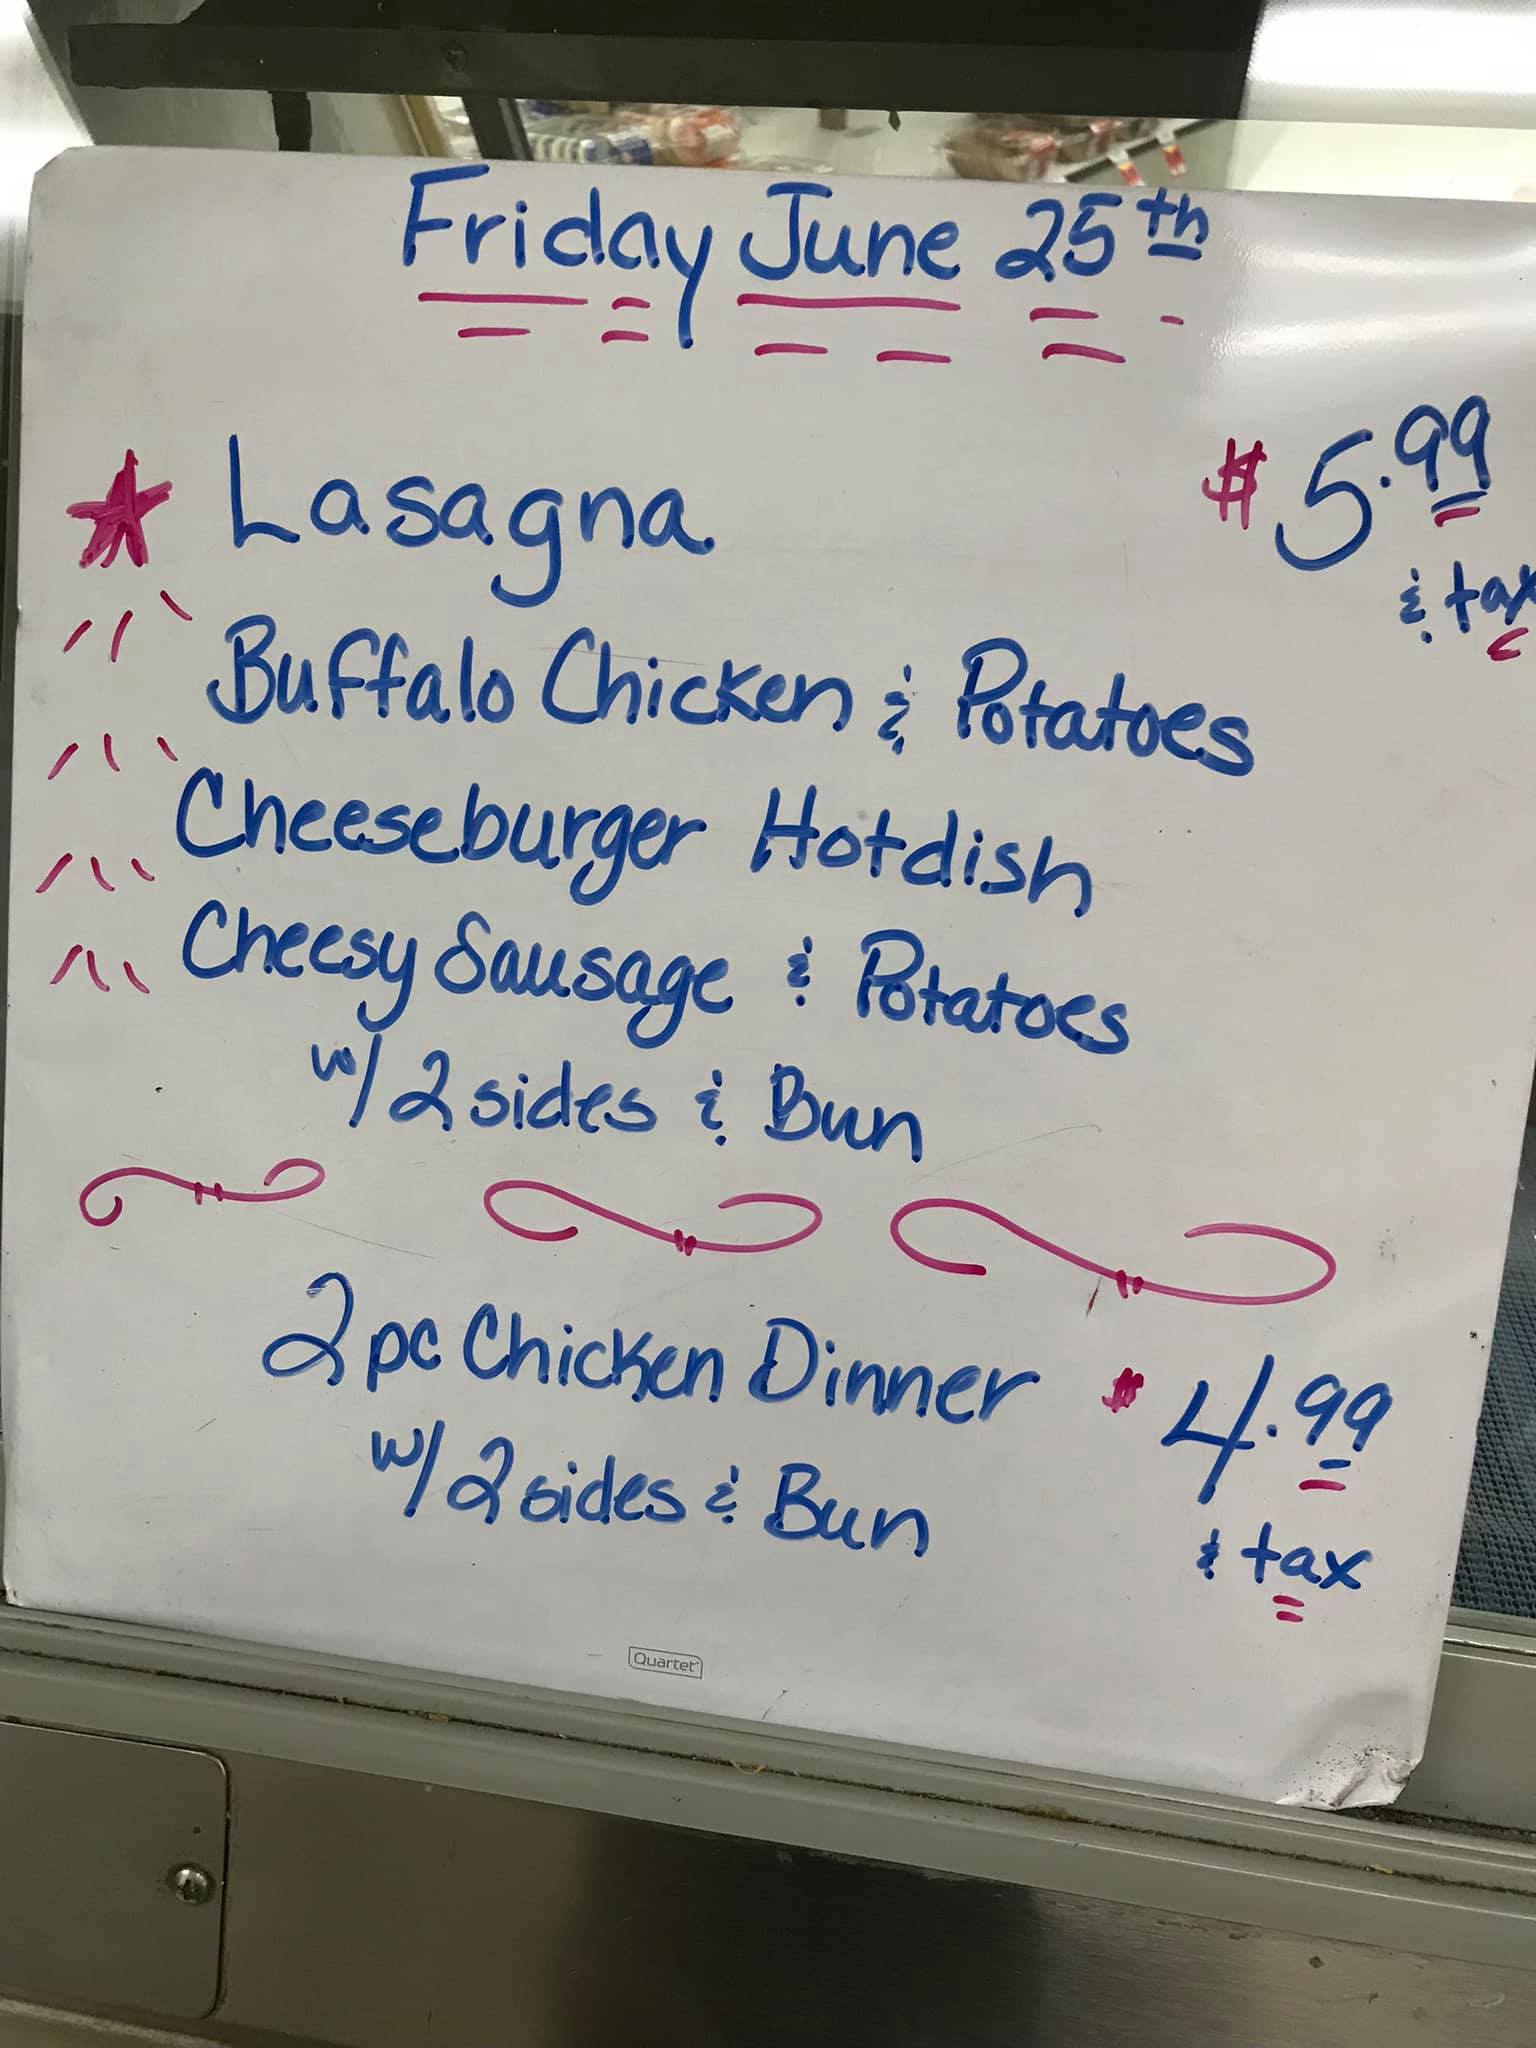 Friday June 25th
Lasagna $5.99
& tax
Buffalo Chicken & Potatoes
Cheeseburger Hotdish
Cheesy Sausage & Potatoes
w/ 2 sides & Bun
2 pc Chicken Dinner $4.99
w/ 2 sides & Bun
& tax
Quartet